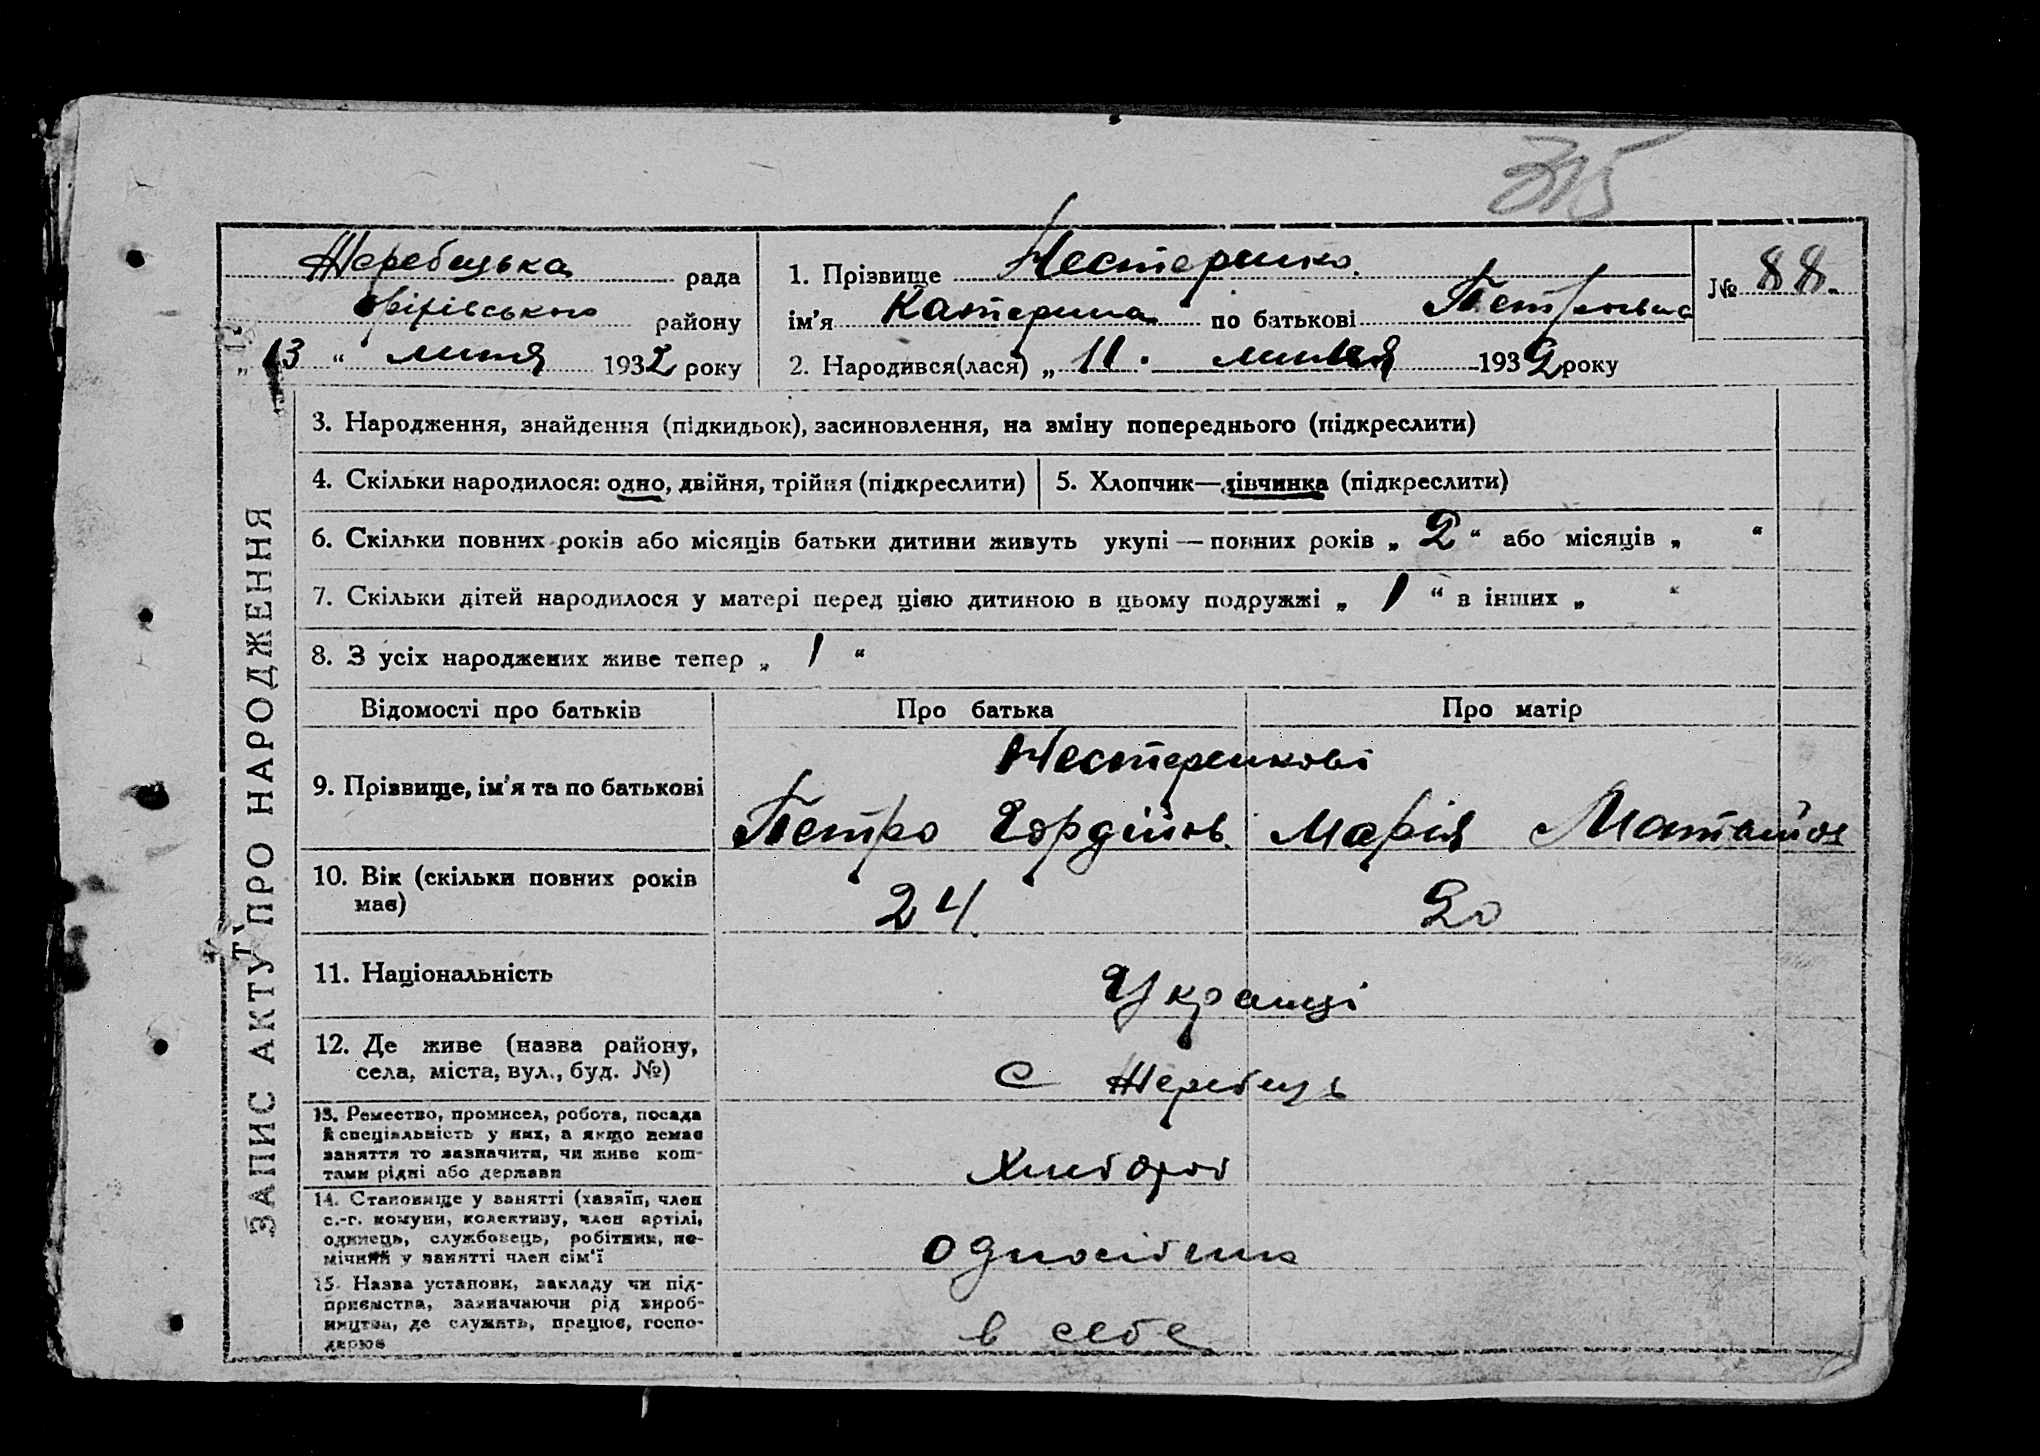 315
Жеребецька рада
Оріхівського району
„13“ липня 1932 року
1. Прізвище Нестеренко
ім’я Катерина по батькові Петровна
№ 88.
2. Народився(лася) „11. липня 1932 року
3. Народження, знайдення (підкидьок), засиновлення, на зміну попереднього (підкреслити)
4. Скільки народилося: одно, двійня, трійня (підкреслити) 5. Хлопчик—дівчинка (підкреслити)
6. Скільки повних років або місяців батьки дитини живуть укупі — повних років „2“ або місяців „ “
7. Скільки дітей народилося у матері перед цією дитиною в цьому подружжі „1“ в інших „ “
8. З усіх народжених живе тепер „1“
Відомості про батьків Про батька Про матір
9. Прізвище, ім’я та по батькові
Нестеренкові
Петро Гордійов. Марія
10. Вік (скільки повних років
має)
24. 20
11. Національність
Українці
12. Де живе (назва району,
села, міста, вул., буд. №)
с Жеребець
13. Ремество, промисел, робота, посада
й спеціяльність у них, а якщо немає
заняття то зазначити, чи живе кош-
тами рідні або держави
Хлібороб
14. Становище у занятті (хазяїн, член
с.-г. комуни, колективу, член артілі,
одинець, службовець, робітник, по-
мічний у занятті член сім’ї
односібник
15. Назва установи, закладу чи під-
приємства, зазначаючи рід вироб-
ництва, де служить, працює, госпо-
дарює
в себе
ЗАПИС АКТУ ПРО НАРОДЖЕННЯ